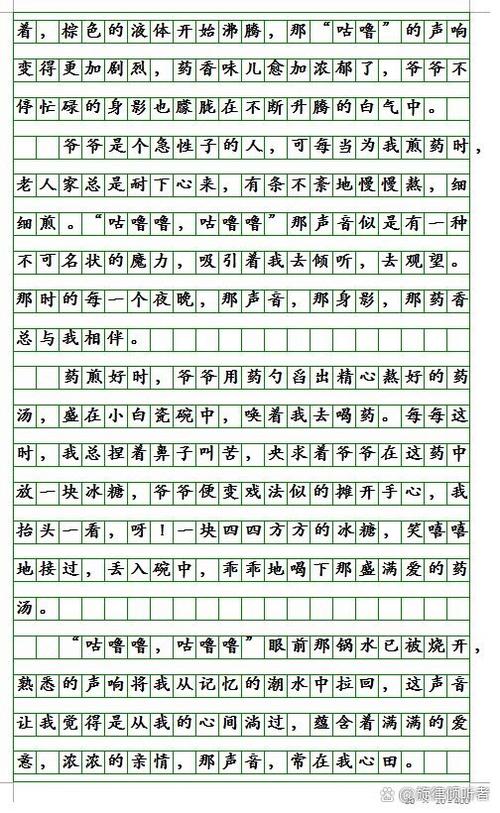 着，棕色的液体开始沸腾，那“咕噜”的声响
变得更加剧烈，药香味儿愈加浓郁了，爷爷不
停忙碌的身影也朦胧在不断升腾的白气中。
爷爷是个急性子的人，可每当为我煎药时，
老人家总是耐下心来，有条不紊地慢慢熬，细
细煎。“咕噜噜，咕噜噜”那声音似是有一种
不可名状的魔力，吸引着我去倾听，去观望。
那时的每一个夜晚，那声音，那身影，那药香
总与我相伴。
药煎好时，爷爷用药勺舀出精心熬好的药
汤，盛在小白瓷碗中，唤着我去喝药。每每这
时，我总捏着鼻子叫苦，央求着爷爷在这药中
放一块冰糖，爷爷便变戏法似的摊开手心，我
抬头一看，呀！一块四四方方的冰糖，笑嘻嘻
地接过，丢入碗中，乖乖地喝下那盛满爱的药
汤。
“咕噜噜，咕噜噜”眼前那锅水已被烧开，
熟悉的声响将我从记忆的潮水中拉回，这声音
让我觉得是从我的心间淌过，蕴含着满满的爱
意，浓浓的亲情，那声音，常在我心田。
知乎 @旋律倾听者